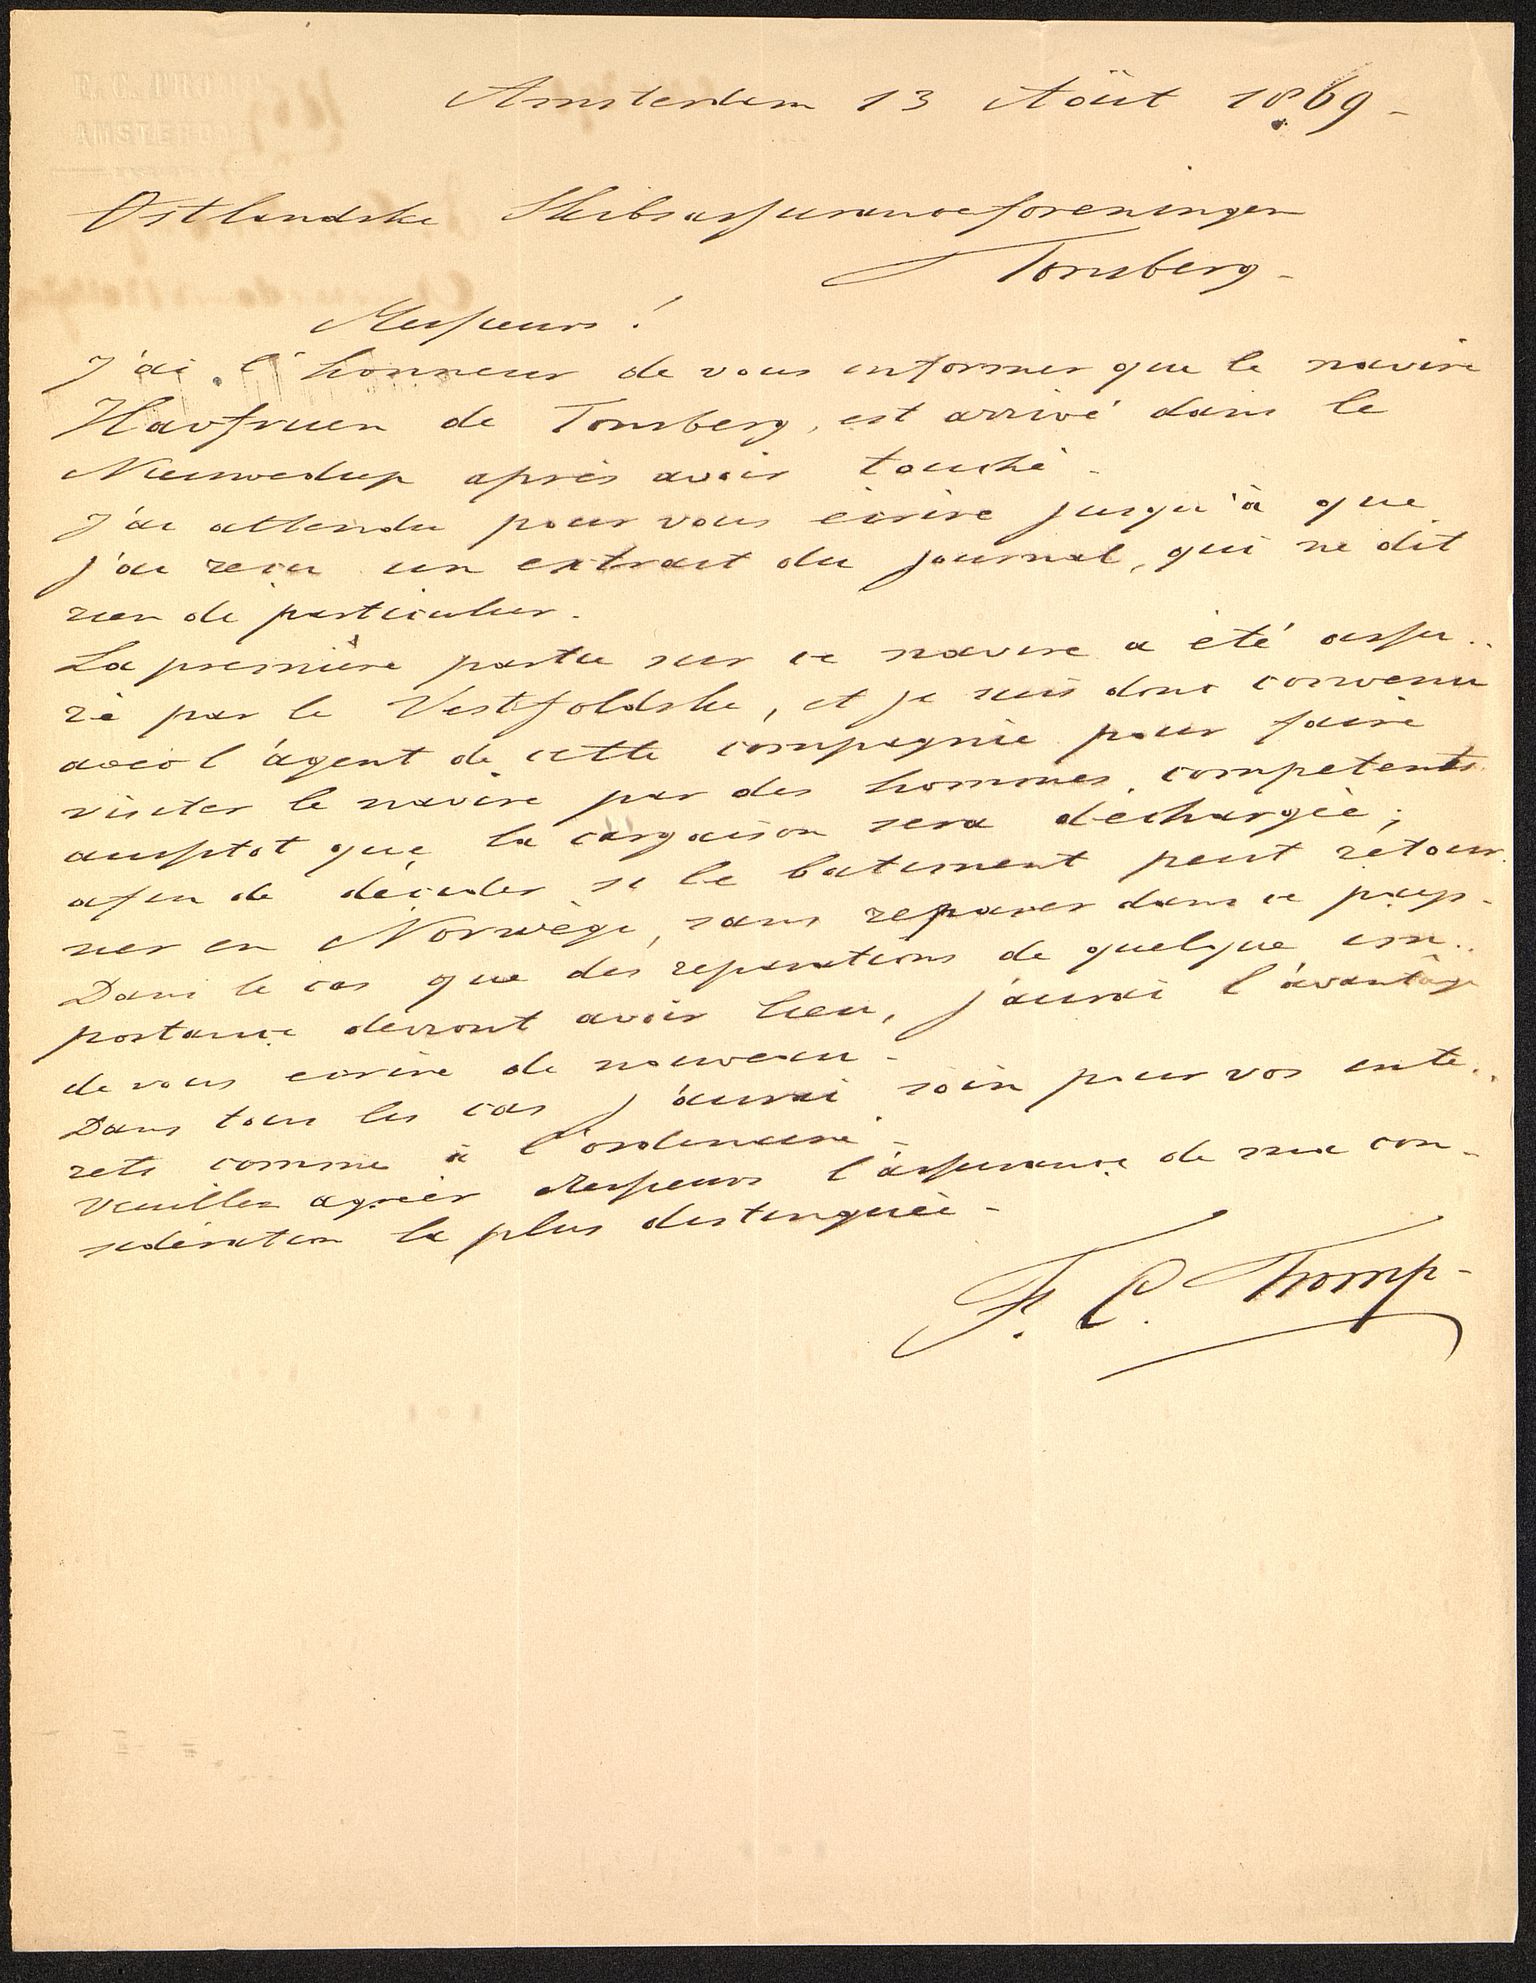 Amsterdam 13 Aôut 1869 -
Ostlandske Skibsassuranceforeningen
Tonsberg -
Messieurs !
J'ai l'honneur de vous informer que le navire
Havfruen de Tonsberg, est arrivé dans le
Nieuwediep après avoir touché -
J'ai attendu pour vous écrire jusqu'à que
j'ai reçu un extrait du journal, qui ne dit
rien de particulier.
La première partie sur ce navire a été assu..
ré par le Vestfoldske, et je suis donc convenu
avec l'agent de cette compagnie pour faire
visiter le navire par des hommes competents
aussitot que la cargaison sera dechargée,
afin de décider si le batiment peut retour.
ner en Norwège, sans reparer dans ce pays -
Dans le cas que des reparations de quelque im..
portance devront avoir lieu, j'aurai l'avantage
de vous ecrire de nouveau -
Dans tous les cas j'aurai soin pour vos inte..
rets comme à l'ordinaire -
Veuillez agréer Messieurs l'assurance de ma con -
sidération la plus distinguée -
F. C. Tromp -